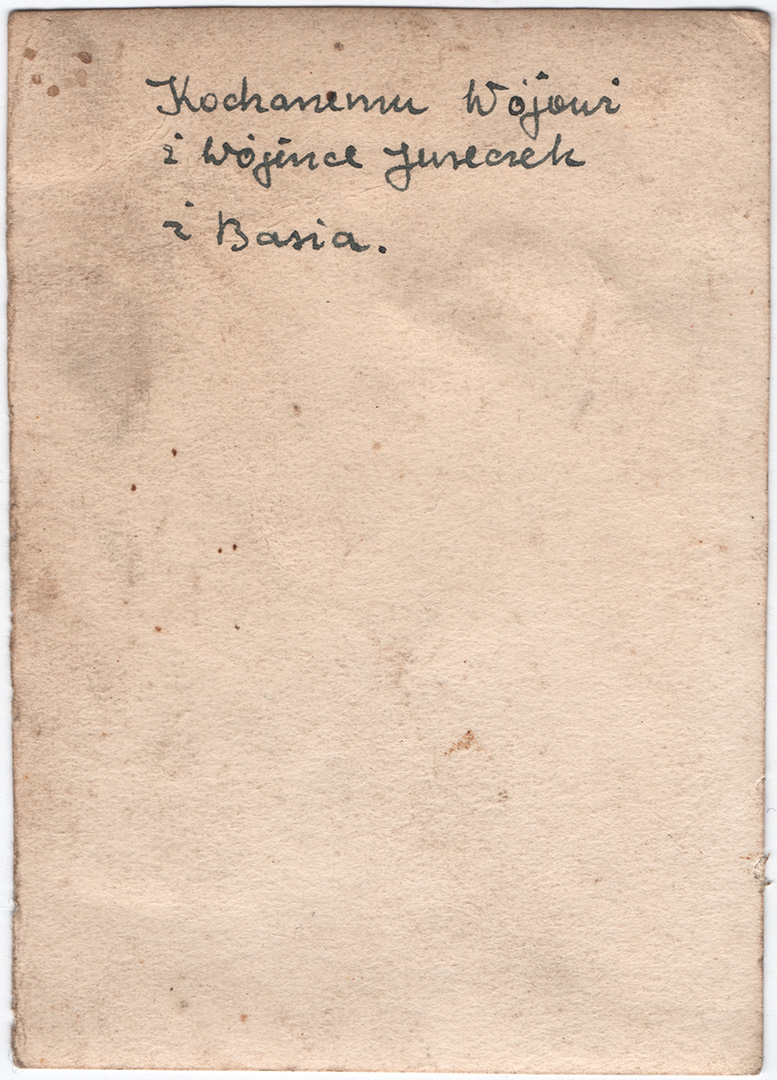 Kochanemu Wójowi
i Wójence Jureczek
i Basia.